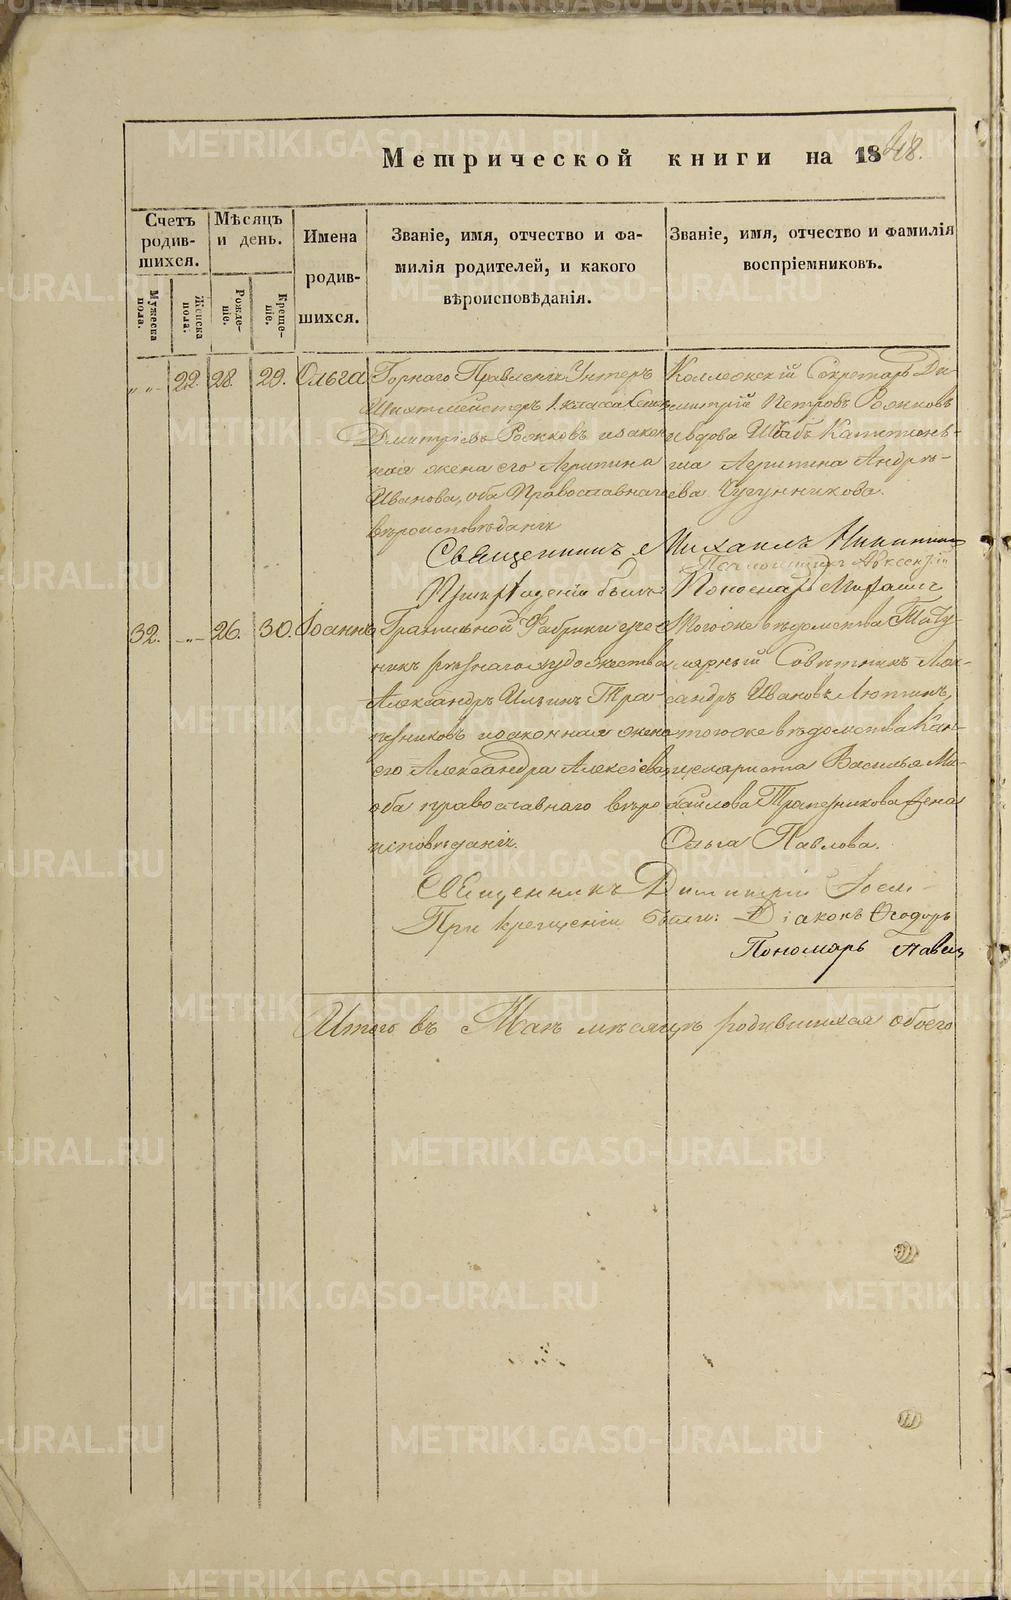 Метрической книги на 1848.
Счетъ родив- шихся.
Мѣсяцъ и день.
Имена родив- шихся.
Званіе, имя, отчество и фа-
милія родителей, и какого
вѣроисповѣданія.
Званіе, имя, отчество и фамилія
воспріемниковъ.
Мужеска пола.
Женска пола.
Рожде- ніе.
Креще- ніе.
22. 28. 29. Ольга
Горнаго Правленія Унтеръ
Шихтмейстеръ 1. класса
Дмитріевъ Рожковъ и закон
ная жена его Агрипина
Иванова, оба Православнаго
вѣроисповѣданія
Коллежскій Секретарь Ди-
митрій Петровъ Рожковъ
и вдова Штабъ Капитан-
ша Агрипина Андрѣ-
ева Чугунникова.
Священникъ Михаилъ Никитинъ
При крещеніи были: Пономарь
32. 26. 30. Іоаннъ
Гранильной Фабрики уче
никъ рѣзнаго художества
Александръ Ильинъ Тра-
пезниковъ и законная жена
его Александра Алексіева,
оба православнаго вѣро
исповѣданія.
Того же вѣдомства Титу-
лярный Совѣтникъ Лек-
сандръ Ивановъ Лютинъ,
и того же вѣдомства Кан-
целяриста Василья Ми-
хайлова Трапезникова жена
Ольга Павлова.
Священникъ Димитрій
При крещеніи были: Діаконъ Ѳеодоръ
Пономарь Павелъ
Итого въ Маѣ мѣсяцѣ родившихся обоего
METRIKI.GASO-URAL.RU